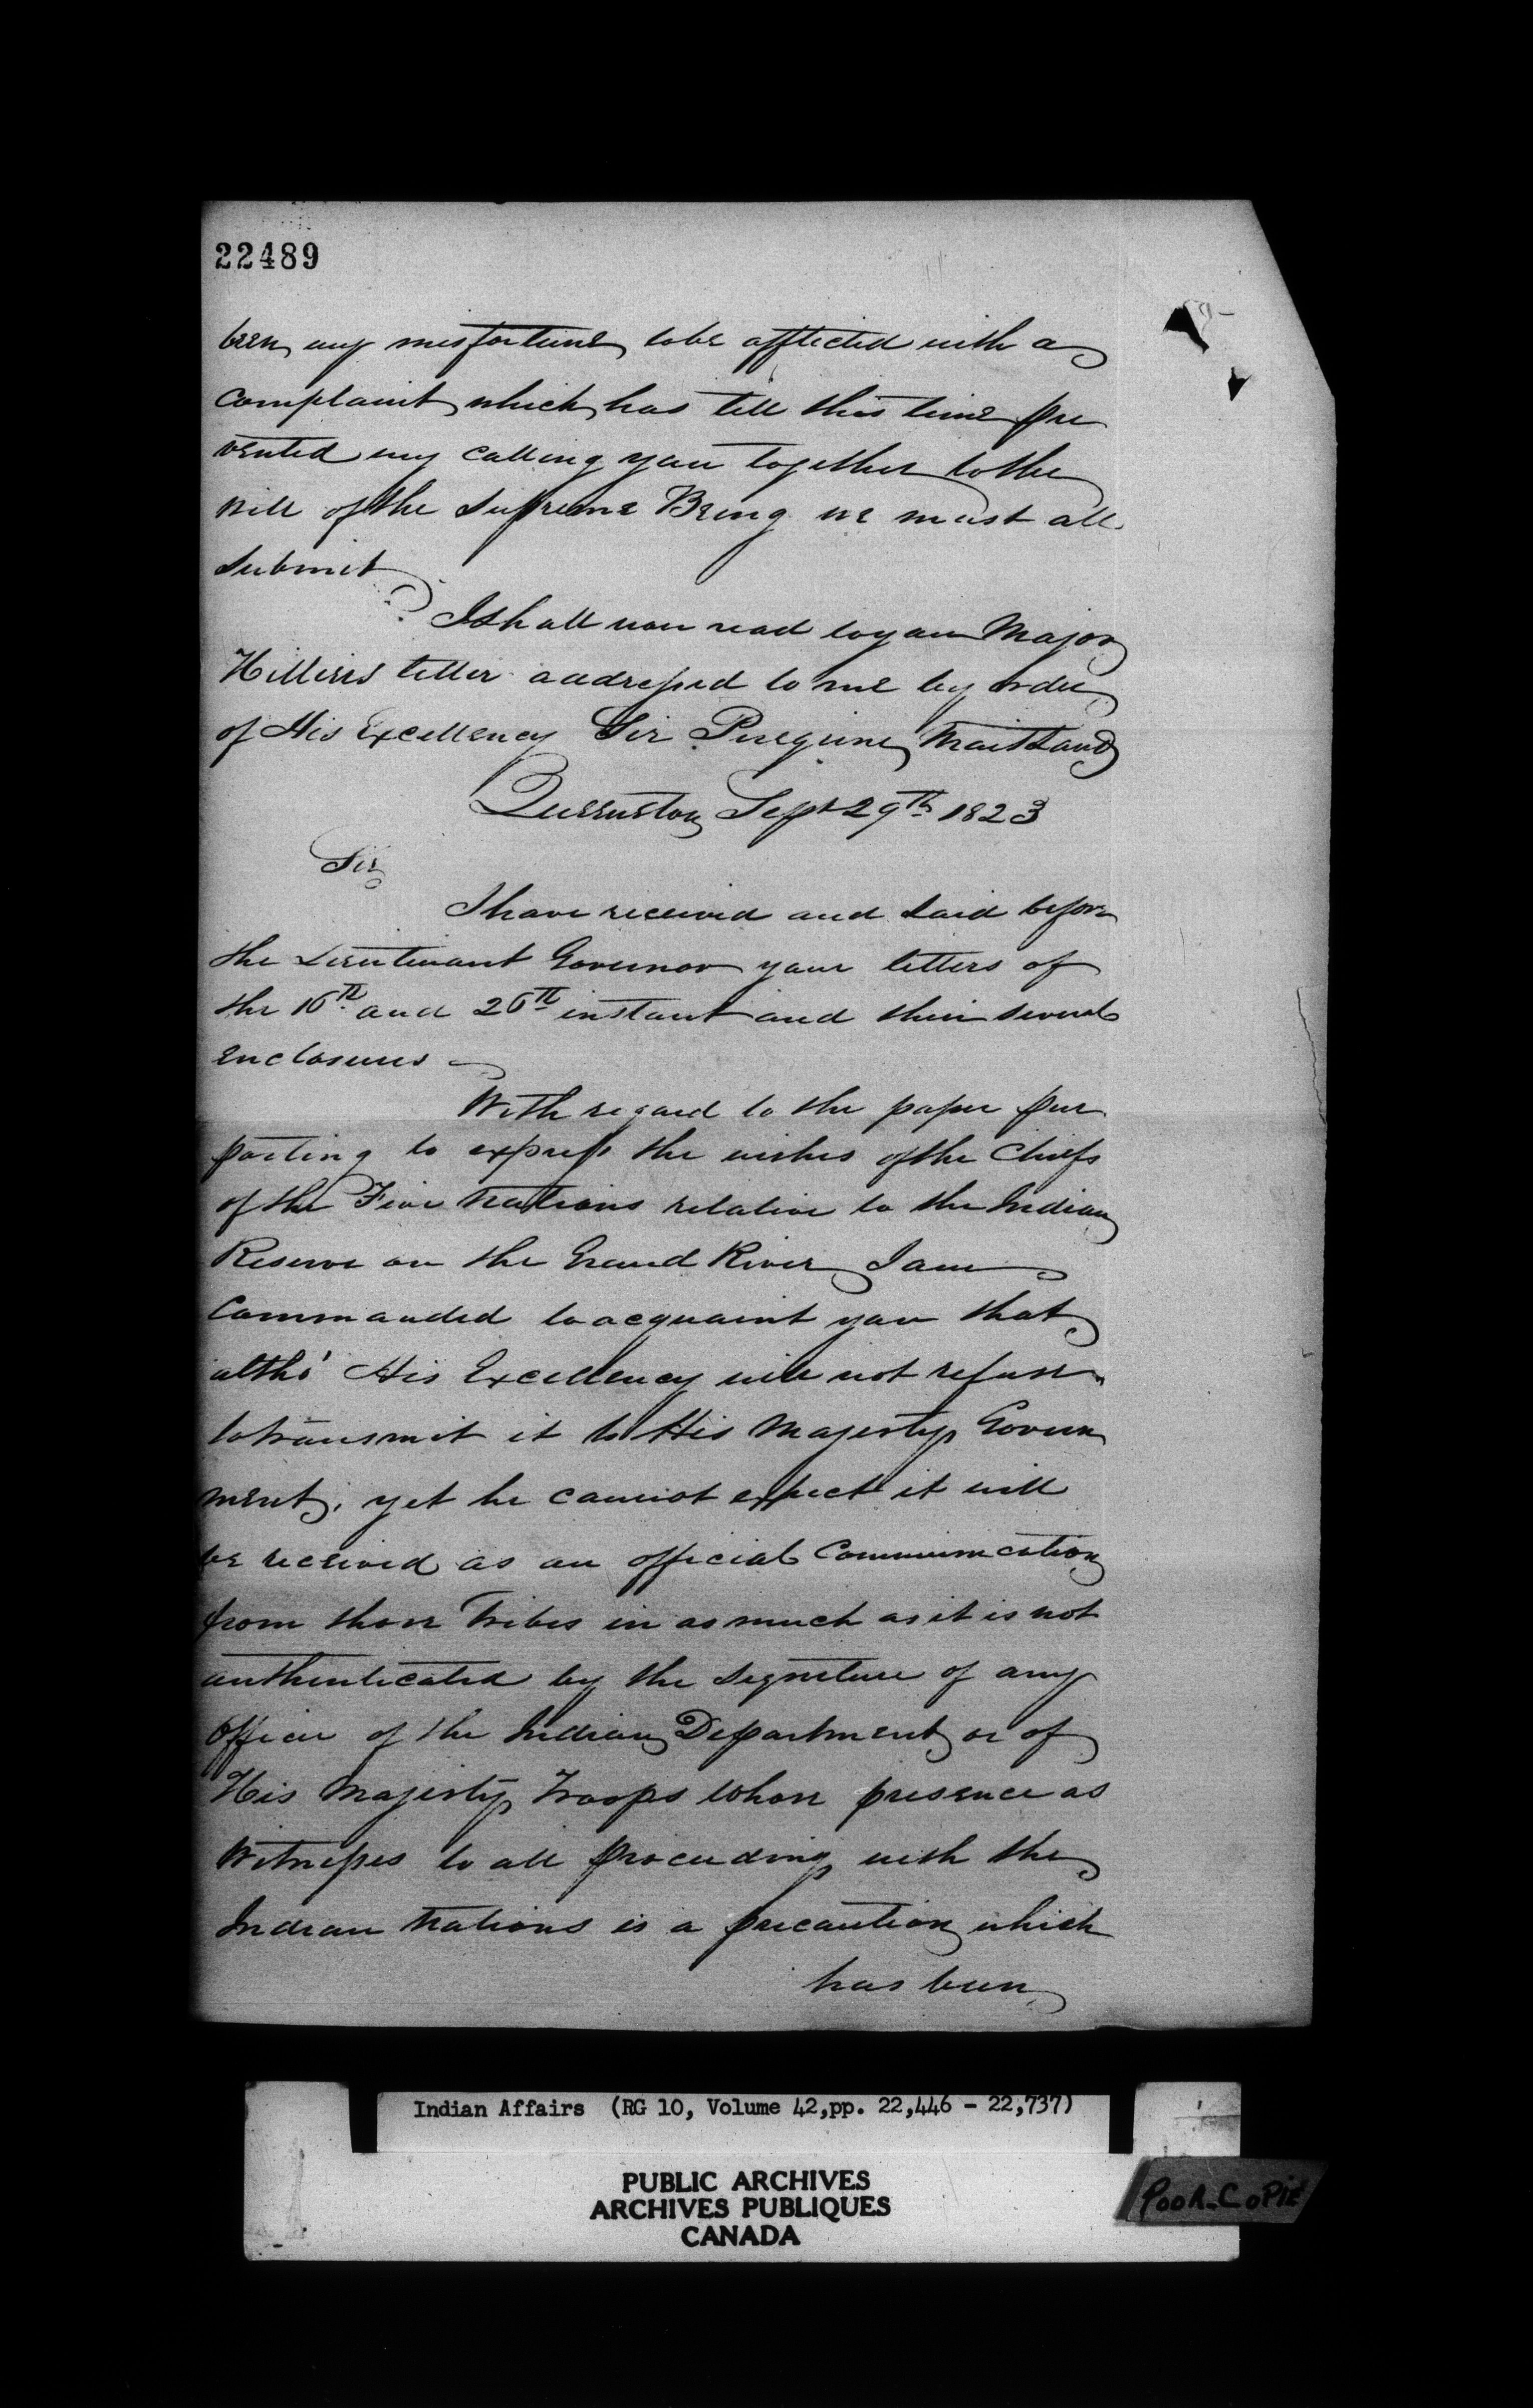 22489
been my misfortune to be afflicted with a
complaint which has till this time pre
vented my calling you together to the
will of the Supreme Being we must all
submit
I shall now read to you Major
Hilliers letter addressed to me by order
of His Excellency Sir Peregrine Maitland
Queenston Sept 29th 1823
Sir
I have received and laid before
the Lieutenant Governor your letters of
the 16th and 26th instant and their several
enclosures
With regard to the paper pur
porting to express the wishes of the Chiefs
of the Five Nations relative to the Indian
Reserve on the Grand River I am
Commanded to acquaint you that
altho' His Excellency will not refuse
to transmit it to His Majestys Govern
ment, yet he cannot expect it will
be received as an official Communication
from those Tribes in as much as it is not
authenticated by the signature of any
Officer of the Indian Department or of
His Majestys Troops whose presence as
Witnesses to all proceedings with the
Indian Nations is a precaution which
has been
Indian Affairs (RG 10, Volume 42, pp. 22,446 - 22,737)
PUBLIC ARCHIVES
ARCHIVES PUBLIQUES
CANADA
POOR COPIE